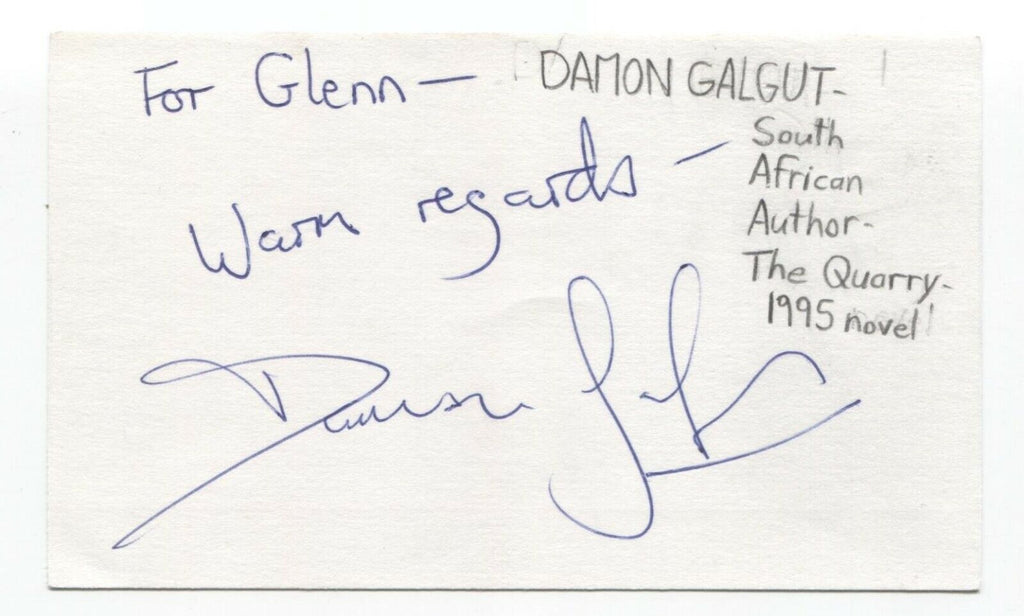 For Glenn—
DAMON GALGUT-
South
African
Author-
The Quarry-
1995 novel
Warm regards—
Damon Galgut